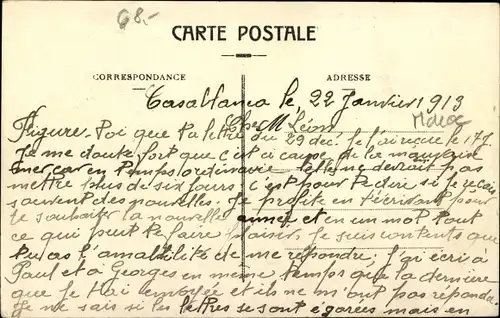 68.-
CARTE POSTALE
CORRESPONDANCE
ADRESSE
Casablanca le, 22 Janvier 1913
Maroc
Cher M Léon
Figure-toi que ta lettre du 29 déc. je l'ai reçue le 17
Je me doute fort que c'est à cause de la mauvaise
mer car en temps ordinaire lettre ne devrait pas
mettre plus de six jours. C'est pour te dire si je reçois
souvent des nouvelles. Je profite en t'écrivant pour
te souhaiter la nouvelle année et en un mot tout
ce qui peut te faire plaisir. Je suis contente que
tu as l'amabilité de me répondre; j'ai écri à
Paul et à Georges en même temps que la dernière
que je t'ai envoyée et ils ne m'ont pas répondu.
Je ne sais si les lettres se sont égarées mais en